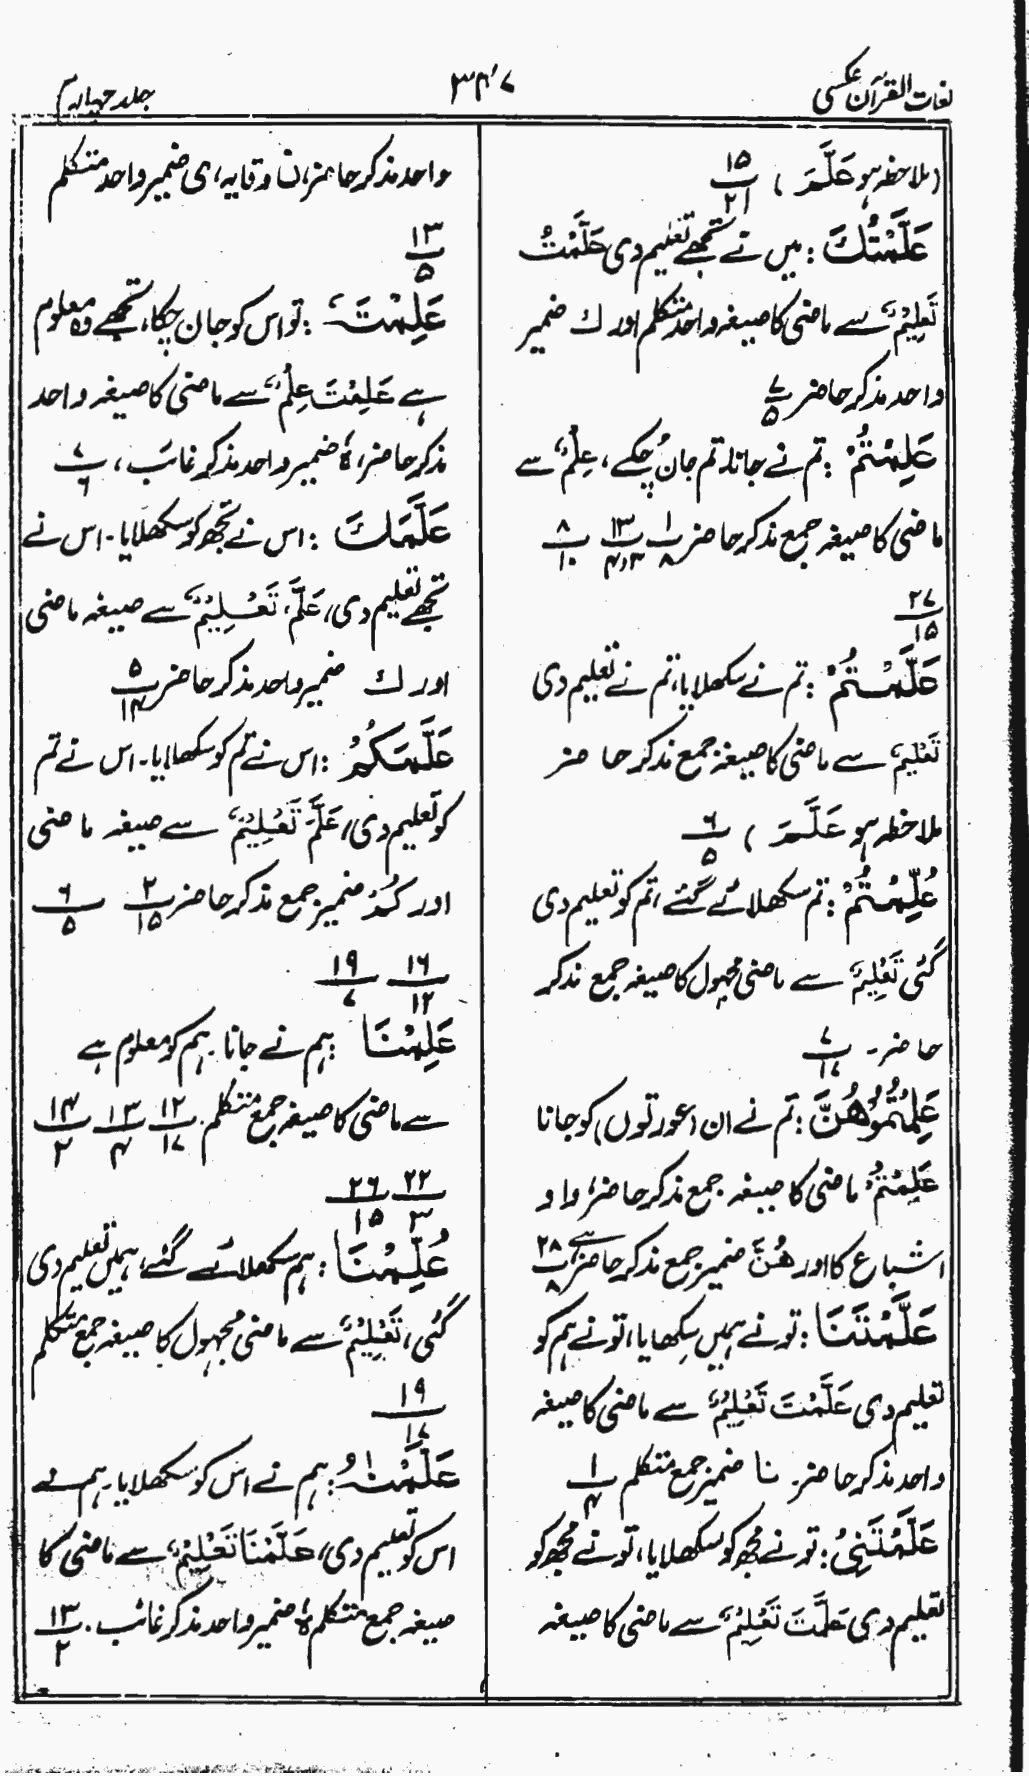 لغات القرآن عکسی
۳۴۷
جلد چہارم
(ملاحظہ ہو عَلَّمَ ) ۱۵/۲۱
عَلَّمْتُكَ : میں نے تجھے تعلیم دی عَلَّمْتُ
تَعْلِیْمٌ سے ماضی کا صیغہ واحد متکلم اور ك ضمیر
واحد مذکر حاضر ۷/۵
عَلِمْتُمْ : تم نے جانا، تم جان چکے ، عِلْمٌ سے
ماضی کا صیغہ جمع مذکر حاضر ۱/۸ ۱۳/۴،۳ ۸/۱۰
۲۷/۱۵
عَلَّمْتُمْ : تم نے سکھلایا، تم نے تعلیم دی
تَعْلِیْمٌ سے ماضی کا صیغہ جمع مذکر حاضر
ملاحظہ ہو عَلَّمَ ) ۶/۵
عُلِّمْتُمْ : تم سکھلائے گئے ، تم کو تعلیم دی
گئی تَعْلِیْمٌ سے ماضی مجہول کا صیغہ جمع مذکر
حاضر ۔ ۷/۱۷
عَلِمْتُمُوْهُنَّ : تم نے ان (عورتوں) کو جانا
عَلِمْتُمْ ماضی کا صیغہ جمع مذکر حاضر، واو
اشباع کا اور هُنَّ ضمیر جمع مذکر حاضر سے ۲۸/۸
عَلَّمْتَنَا : تو نے ہمیں سکھایا، تو نے ہم کو
تعلیم دی عَلَّمْتَ تَعْلِیْمٌ سے ماضی کا صیغہ
واحد مذکر حاضر، نا ضمیر جمع متکلم ۱/۴
عَلَّمْتَنِیْ : تو نے مجھ کو سکھلایا، تو نے مجھ کو
تعلیم دی عَلَّمْتَ تَعْلِیْمٌ سے ماضی کا صیغہ
واحد مذکر حاضر، ن وقایہ، ی ضمیر واحد متکلم
۱۳/۵
عَلِمْتَہٗ : تو اس کو جان چکا، تجھے وہ معلوم
ہے عَلِمْتَ عِلْمٌ سے ماضی کا صیغہ واحد
مذکر حاضر، ہٗ ضمیر واحد مذکر غائب ، ۷/۶
عَلَّمَكَ : اس نے تجھ کو سکھلایا ۔ اس نے
تجھے تعلیم دی، عَلَّمَ، تَعْلِیْمٌ سے صیغہ ماضی
اور ك ضمیر واحد مذکر حاضر ۵/۱۴
عَلَّمَكُمْ : اس نے تم کو سکھلایا ۔ اس نے تم
کو تعلیم دی، عَلَّمَ تَعْلِیْمٌ سے صیغہ ماضی
اور كُمْ ضمیر جمع مذکر حاضر ۲/۱۵ ۶/۵
۱۶/۱۲ ۱۹/۷
عَلِمْنَا : ہم نے جانا ۔ ہم کو معلوم ہے
سے ماضی کا صیغہ جمع متکلم ۔ ۱۲/۱۷ ۱۳/۴ ۱۴/۲
۲۲/۳ ۲۶/۱۵
عُلِّمْنَا : ہم سکھلائے گئے، ہمیں تعلیم دی
گئی، تَعْلِیْمٌ سے ماضی مجہول کا صیغہ جمع متکلم
۱۹/۱۷
عَلَّمْنٰہُ : ہم نے اس کو سکھلایا ۔ ہم نے
اس کو تعلیم دی، عَلَّمْنَا تَعْلِیْمٌ سے ماضی کا
صیغہ جمع متکلم ہٗ ضمیر واحد مذکر غائب ۔ ۱۳/۲